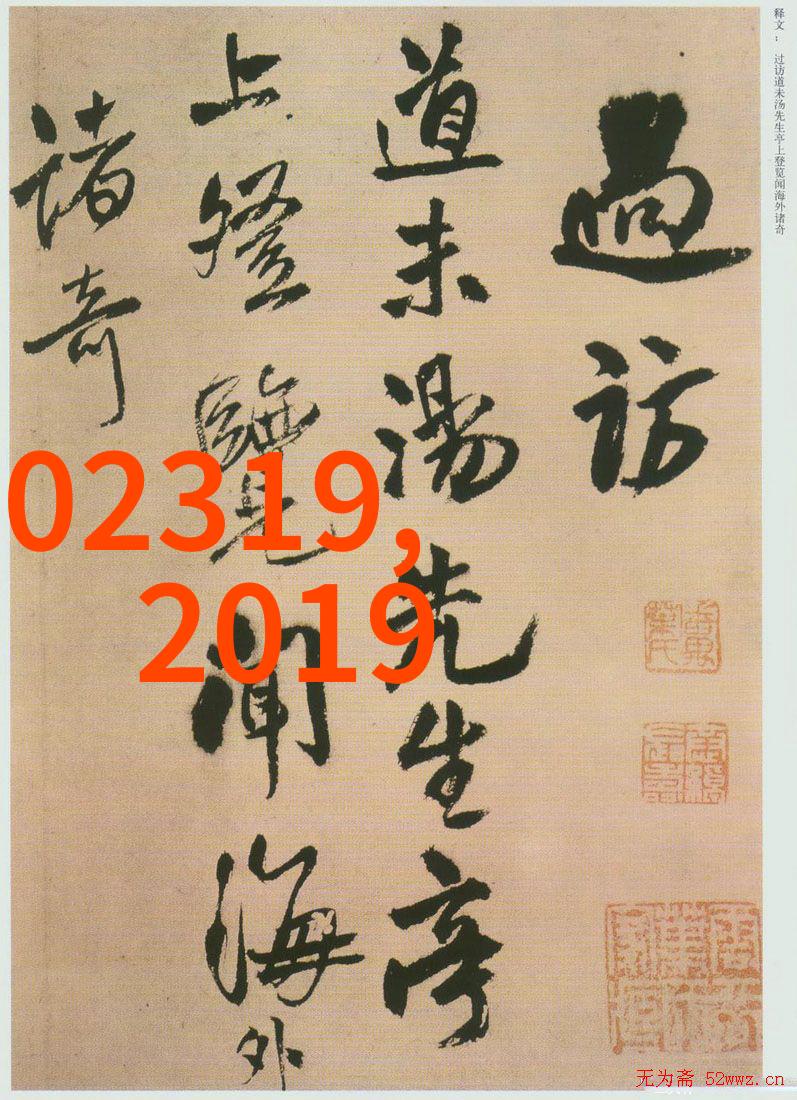 释文： 过访道未汤先生亭上登览闻海外诸奇
過訪
道未湯先生亭
上登覽聞海外
諸奇
02319,
2019
无为斋 52wwz.cn